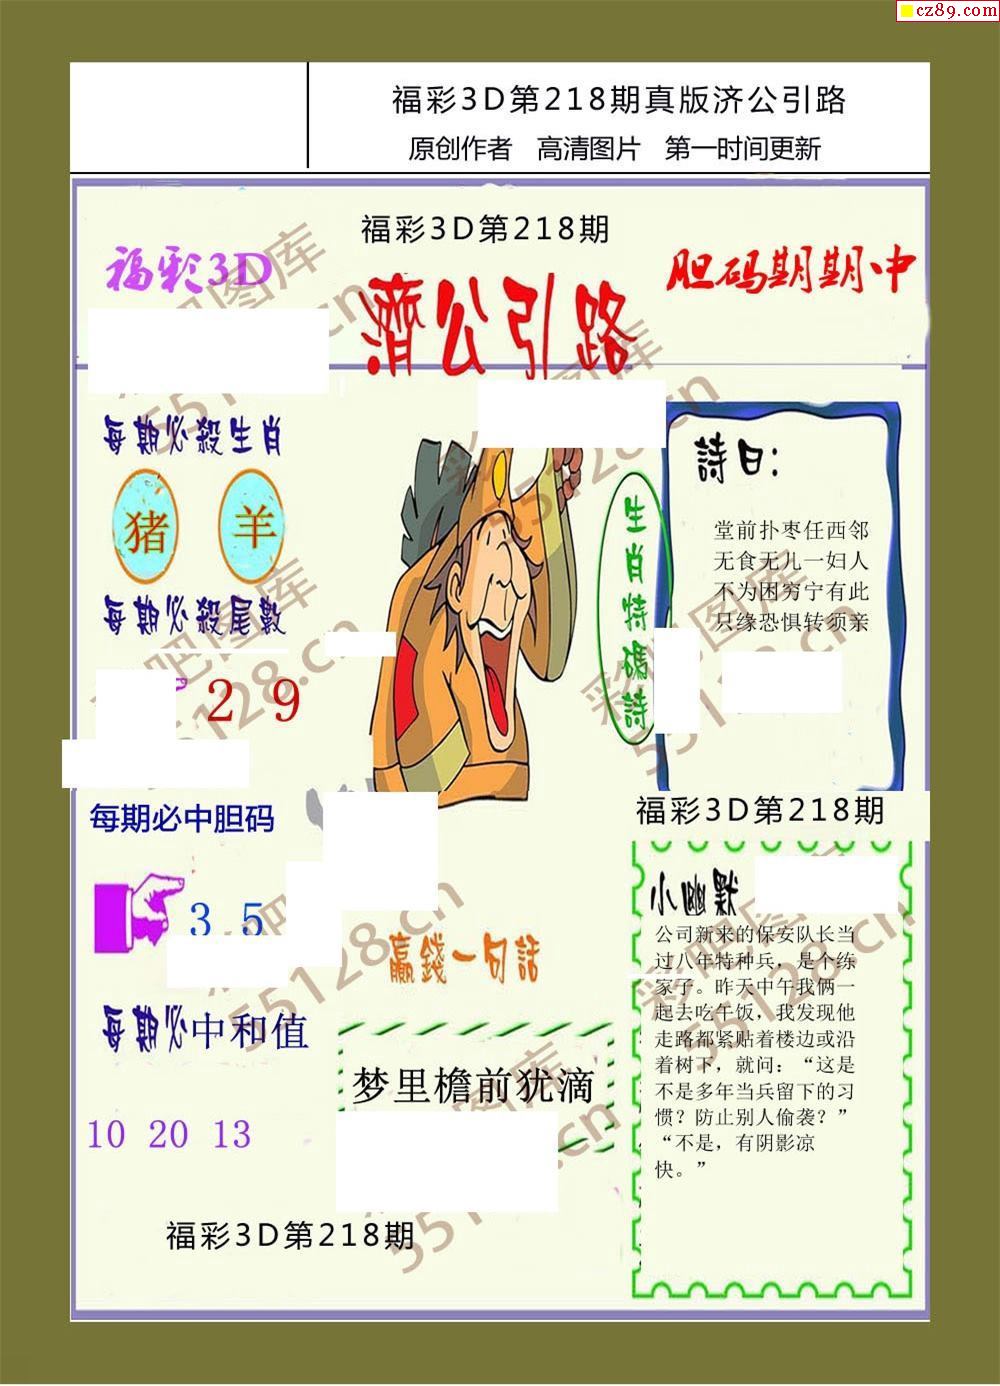 cz89.com
福彩3D第218期真版济公引路
原创作者 高清图片 第一时间更新
福彩3D第218期
福彩3D
胆码期期中
濟公引路
每期必殺生肖
猪 羊
每期必殺尾數
2 9
每期必中胆码
3 5
每期必中和值
10 20 13
生肖特碼詩
詩曰：
堂前扑枣任西邻
无食无儿一妇人
不为困穷宁有此
只缘恐惧转须亲
福彩3D第218期
小幽默
公司新来的保安队长当
过八年特种兵，是个练
家子。昨天中午我俩一
起去吃午饭，我发现他
走路都紧贴着楼边或沿
着树下，就问：“这是
不是多年当兵留下的习
惯？防止别人偷袭？”
“不是，有阴影凉
快。”
赢錢一句話
梦里檐前犹滴
福彩3D第218期
彩吧图库
55128.cn